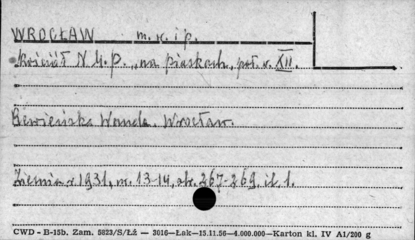 WROCŁAW m. w. i p.
Kościół N.M.P. „na Piaskach, poł. w. XII.
Wanda. Wrocław.
Ziemia r. 1931, nr. 13-14, str. 267-269, il. 1.
CWD - B-15b. Zam. 5823/S/Łż — 3016—Łak—15.11.56—4.000.000—Karton kl. IV A1/200 g